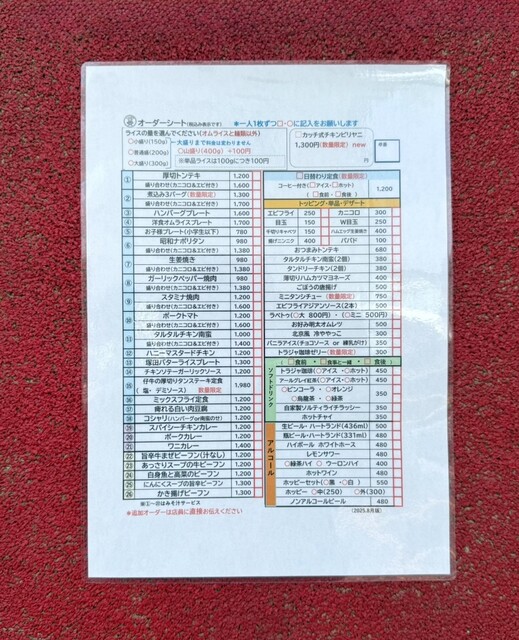 オーダーシート(税込み表示です) *一人1枚ずつ□・○に記入をお願いします
ライスの量を選んでください(オムライスと麺類以外)
○小盛り(150g)
○普通盛(200g)
○大盛り(300g)
大盛りまで料金は変わりません
○山盛り(400g) +100円
※単品ライスは100gにつき100円
□カッチ式チキンビリヤニ
1,300円(数量限定) new
円
① 厚切トンテキ 1,200
盛り合わせ(カニコロ&エビ付き) 1,600
② 煮込み3バーグ(数量限定) 1,300
盛り合わせ(カニコロ&エビ付き) 1,700
③ ハンバーグプレート 1,600
④ 洋食オムライスプレート 1,700
⑤ お子様プレート(小学生以下) 780
⑥ 昭和ナポリタン 980
盛り合わせ(カニコロ&エビ付き) 1,380
⑦ 生姜焼き 980
盛り合わせ(カニコロ&エビ付き) 1,380
⑧ ガーリックペッパー焼肉 980
盛り合わせ(カニコロ&エビ付き) 1,380
⑨ スタミナ焼肉 1,200
盛り合わせ(カニコロ&エビ付き) 1,600
⑩ ポークトマト 1,200
盛り合わせ(カニコロ&エビ付き) 1,600
⑪ タルタルチキン南蛮 1,000
盛り合わせ(カニコロ&エビ付き) 1,400
⑫ ハニーマスタードチキン 1,200
⑬ 塚田バターライスプレート 1,300
⑭ チキンソテーガーリックソース 1,200
⑮ 仔牛の厚切りタンステーキ定食
(塩・デミソース) 数量限定 1,980
⑯ ミックスフライ定食 1,200
⑰ 痺れる白い肉豆腐 1,200
⑱ コシャリ(ハンバーグor南蛮のせ) 1,200
スパイシーチキンカレー 1,200
20 ポークカレー 1,200
21 ワニカレー 1,400
22 旨辛牛まぜビーフン(汁なし) 1,200
23 あっさりスープの牛ビーフン 1,200
24 白身魚と高菜のビーフン 1,200
25 にんにくスープの旨辛ビーフン 1,200
26 かき揚げビーフン 1,300
みそ汁サービス
*追加オーダーは店員に直接お伝えください
□日替わり定食(数量限定)
コーヒー付き(○アイス・○ホット)
(○食前・○食後) 1,200
トッピング・単品・デザート
エビフライ 250 カニコロ 300
目玉 150 W目玉 250
千切りキャベツ 150 ハムエッグ生姜焼き 400
揚げニンニク 400 パパド 100
おつまみトンテキ 680
タルタルチキン南蛮(2個) 380
タンドリーチキン(2個) 380
薄切りハムカツマヨネーズ 400
ごぼうの唐揚げ 500
ミニタンシチュー(数量限定) 750
エビフライアジアンソース(2本) 500
ラペトゥ(○大 800円)・(○ミニ 500円)
お好み明太オムレツ 500
北京風 冷ややっこ 300
バニラアイス(チョコソース or 練乳がけ) 350
トラジャ珈琲ゼリー(数量限定) 300
ソフトドリンク
(○食前・○食事と一緒・○食後)
トラジャ珈琲(○アイス・○ホット) 450
アールグレイ紅茶(○アイス・○ホット) 450
○ピンコーラ・○オレンジ
○烏龍茶・○緑茶 350
自家製ソルティライチラッシー 350
ホットチャイ 350
アルコール
生ビール・ハートランド(436ml) 500
瓶ビール・ハートランド(331ml) 480
ハイボール ホワイトホース 480
レモンサワー 480
○緑茶ハイ ○ウーロンハイ 400
ホットワイン 480
ホッピーセット(○黒・○白) 550
ホッピー ○中(250) ○外(300)
ノンアルコールビール 480
(2025.8月版)